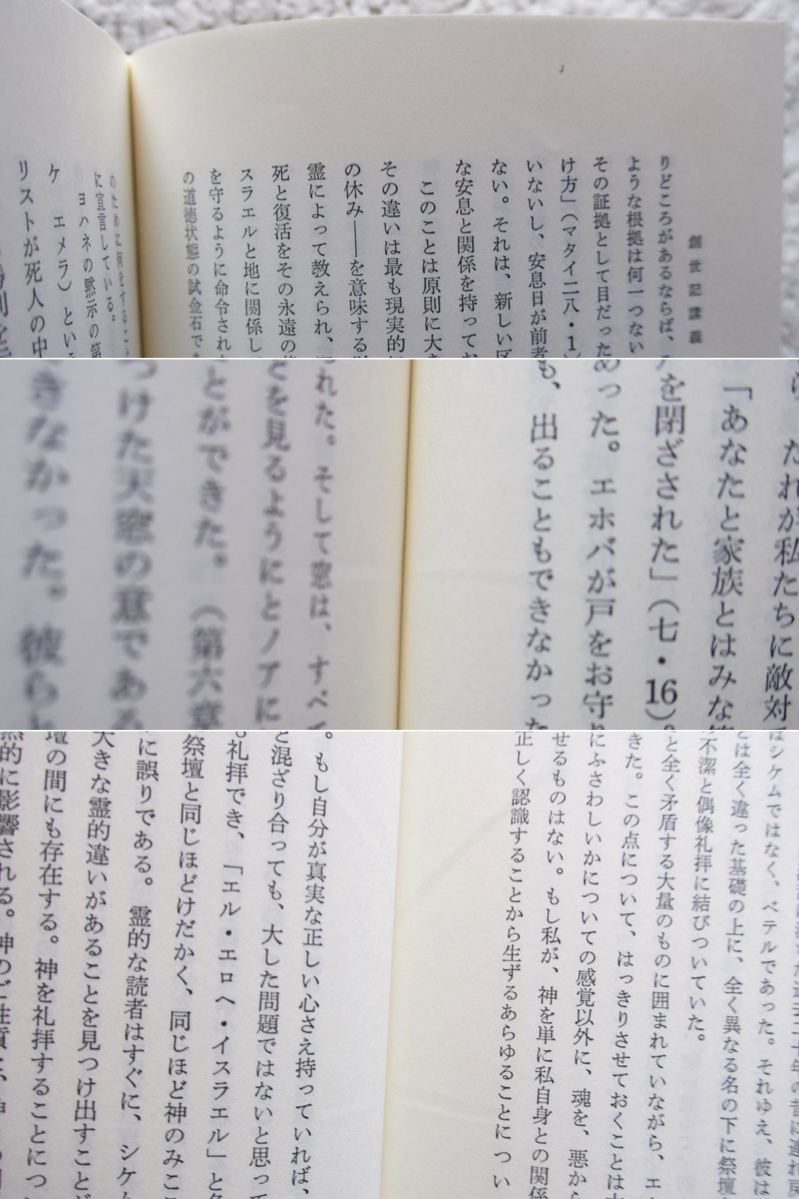 創世記講義
りどころがあるならば、
ような根拠は何一つない
その証拠として目だった
け方」（マタイ二八・1）
いないし、安息日が前者
ない。それは、新しい区
な安息と関係を持ってお
このことは原則に大き
その違いは最も現実的
の休み――を意味する
霊によって教えられ、
死と復活をその永遠の
スラエルと地に関係し
を守るように命令された
の道徳状態の試金石で
のために何をすること
に宣言している。
ヨハネの黙示の第
ケ　エメラ）とい
リストが死人の中
だれが私たちに敵対
「あなたと家族とはみな
を閉ざされた」（七・16）。
あった。エホバが戸をお守り
も、出ることもできなかった
された。そして窓は、すべて
とを見るようにとノアに
とができた。（第六章
つけた天窓の意である
きなかった。彼らと
はシケムではなく、ベテルであった。それゆえ、彼は
とは全く違った基礎の上に、全く異なる名の下に祭壇
不潔と偶像礼拝に結びついていた。
と全く矛盾する大量のものに囲まれていながら、エ
きた。この点について、はっきりさせておくことは
にふさわしいかについての感覚以外に、魂を、悪から
せるものはない。もし私が、神を単に私自身との関係
正しく認識することから生ずるあらゆることについ
。もし自分が真実な正しい心さえ持っていれば、
と混ざり合っても、大した問題ではないと思って
も礼拝でき、「エル・エロヘ・イスラエル」と
祭壇と同じほどけだかく、同じほど神のみこ
に誤りである。霊的な読者はすぐに、シケ
大きな霊的違いがあることを見つけ出すこと
壇の間にも存在する。神を礼拝することにつ
然的に影響される。神のご性質